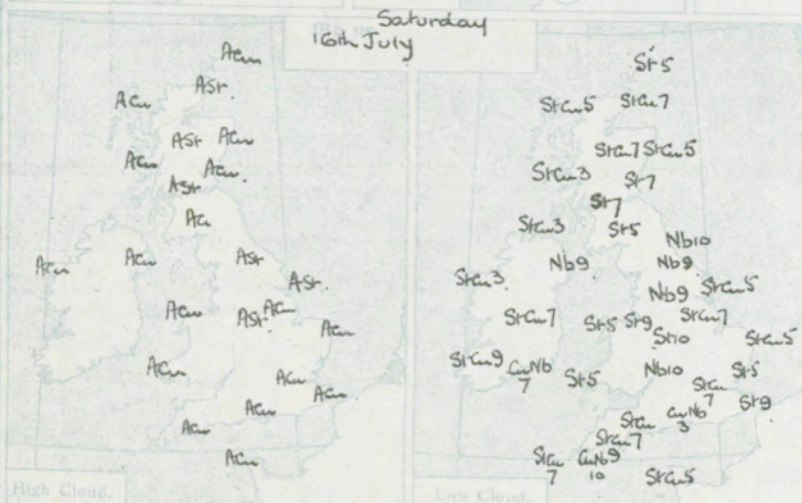 Saturday
16th July
Acu
ASt.
Acu
ASt Acu
Acu Acu
ASt
Acu
Acu Acu ASt
ASt.
Acu ASt Acu
Acu
Acu Acu
Acu
Acu
Acu
Acu
High Cloud.
St 5
StCu5 StCu7
StCu7 StCu5
StCu3 St7
St7
StCu3 St5
Nb10
Nb9 Nb9
StCu3 Nb9 StCu5
StCu7 St5 St9 StCu7
St10 StCu5
StCu9 CuNb
7 St5 Nb10 St5
StCu
7 St9
StCu CuNb
3
StCu7
StCu
7 CuNb9
10 StCu5
Low Cloud.